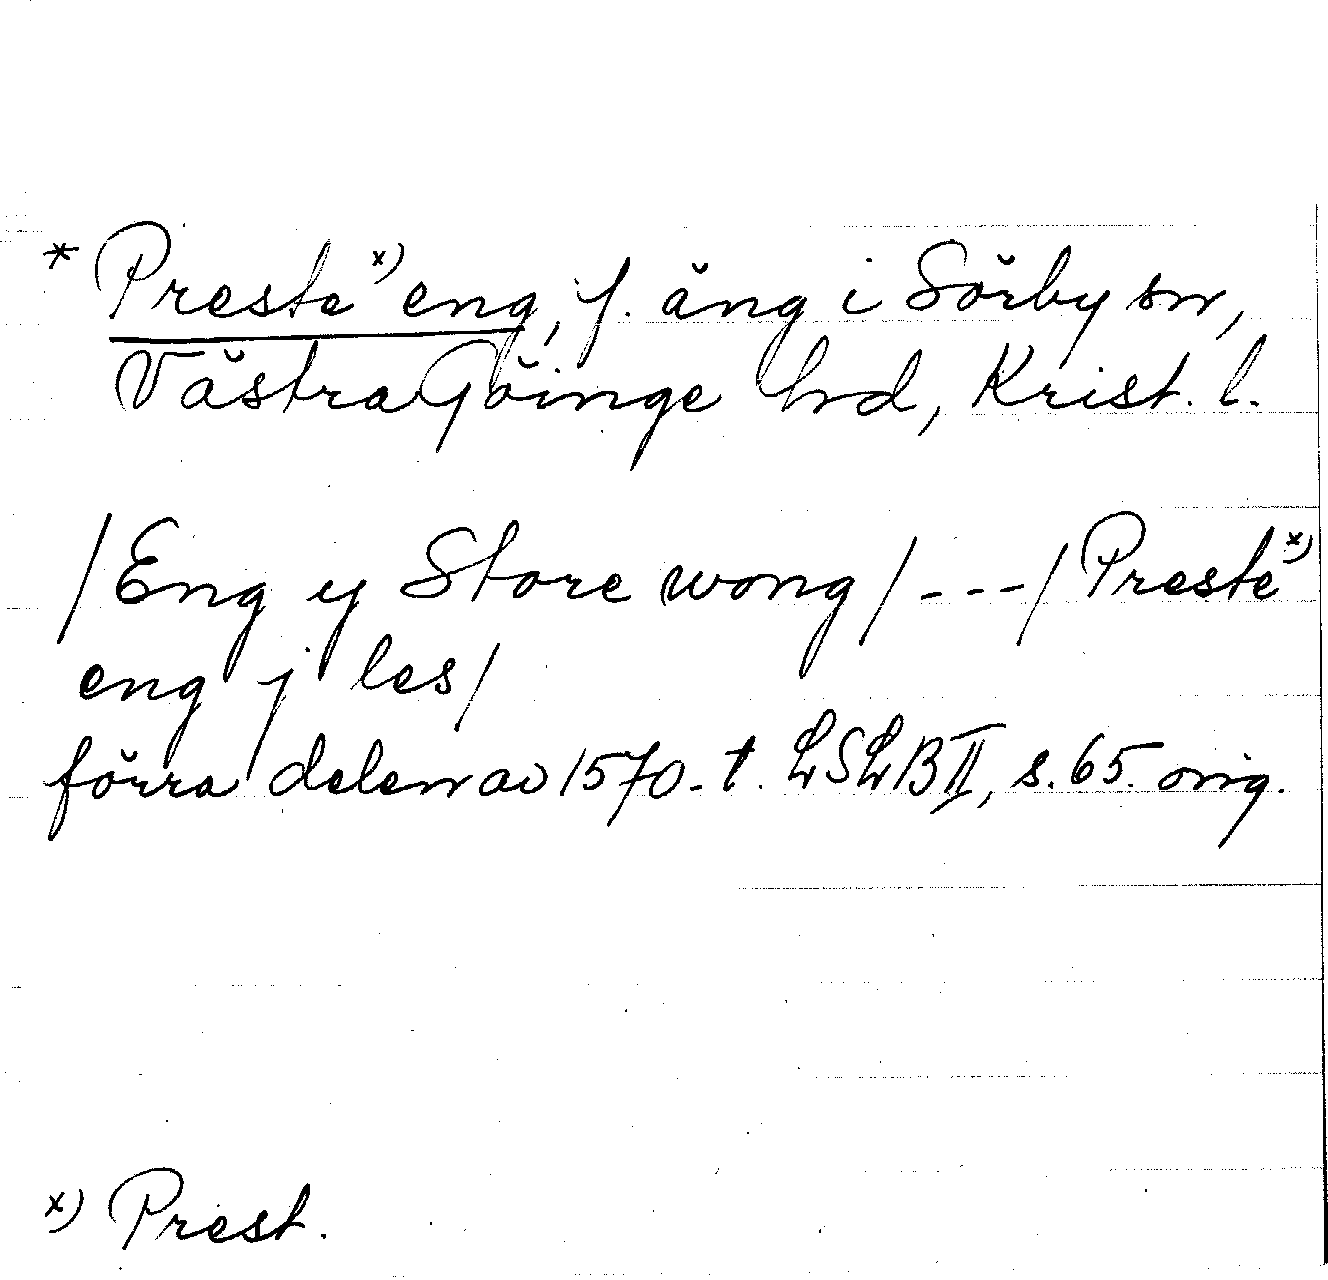 * Preste x) eng, f. äng i Sörby sn,
Västra Göinge hrd, Krist. l.
/Eng y Store wong/ ---/Preste x)
eng j les/
förra delen av 1570-t. LSLB II, s. 65. orig.
x) Prest.